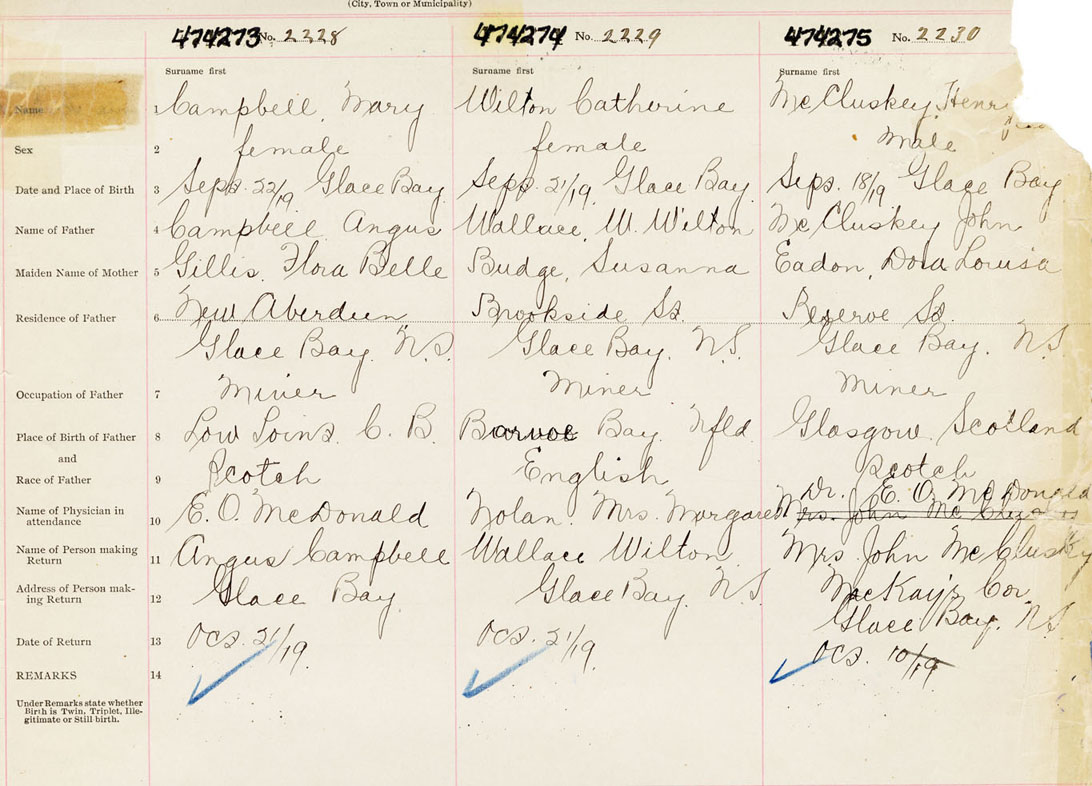 (City, Town or Municipality)
474273 No. 2228 474274 No. 2229 474275 No. 2230
Surname first Surname first Surname first
Name 1 Campbell, Mary Wilton Catherine McCluskey, Henr
Sex 2 female female male
Date and Place of Birth 3 Sept. 22/19 Glace Bay Sept. 21/19, Glace Bay Sept. 18/19 Glace Bay
Name of Father 4 Campbell Angus Wallace, W. Wilton McCluskey John
Maiden Name of Mother 5 Gillis, Flora Belle Budge, Susanna Eadon, Dora Louisa
Residence of Father 6 New Aberdeen Brookside St Reserve St
Glace Bay. N.S. Glace Bay. N.S. Glace Bay. N.S
Occupation of Father 7 Miner Miner Miner
Place of Birth of Father 8 Low Point. C. B. Bay. Nfld Glasgow. Scotland
and
Race of Father 9 Scotch English Scotch
Dr. E. O. McDonald
Name of Physician in attendance 10 E. O. McDonald Nolan. Mrs. Margaret Mrs. John
Name of Person making Return 11 Angus Campbell Wallace Wilton Mrs. John McCluskey
Address of Person making Return 12 Glace Bay. Glace Bay. N.S MacKay's Cor
Glace Bay. N.S
Date of Return 13 Oct. 21/19 Oct. 21/19. Oct. 10/19
REMARKS 14
Under Remarks state whether
Birth is Twin, Triplet, Ille-
gitimate or Still-birth.